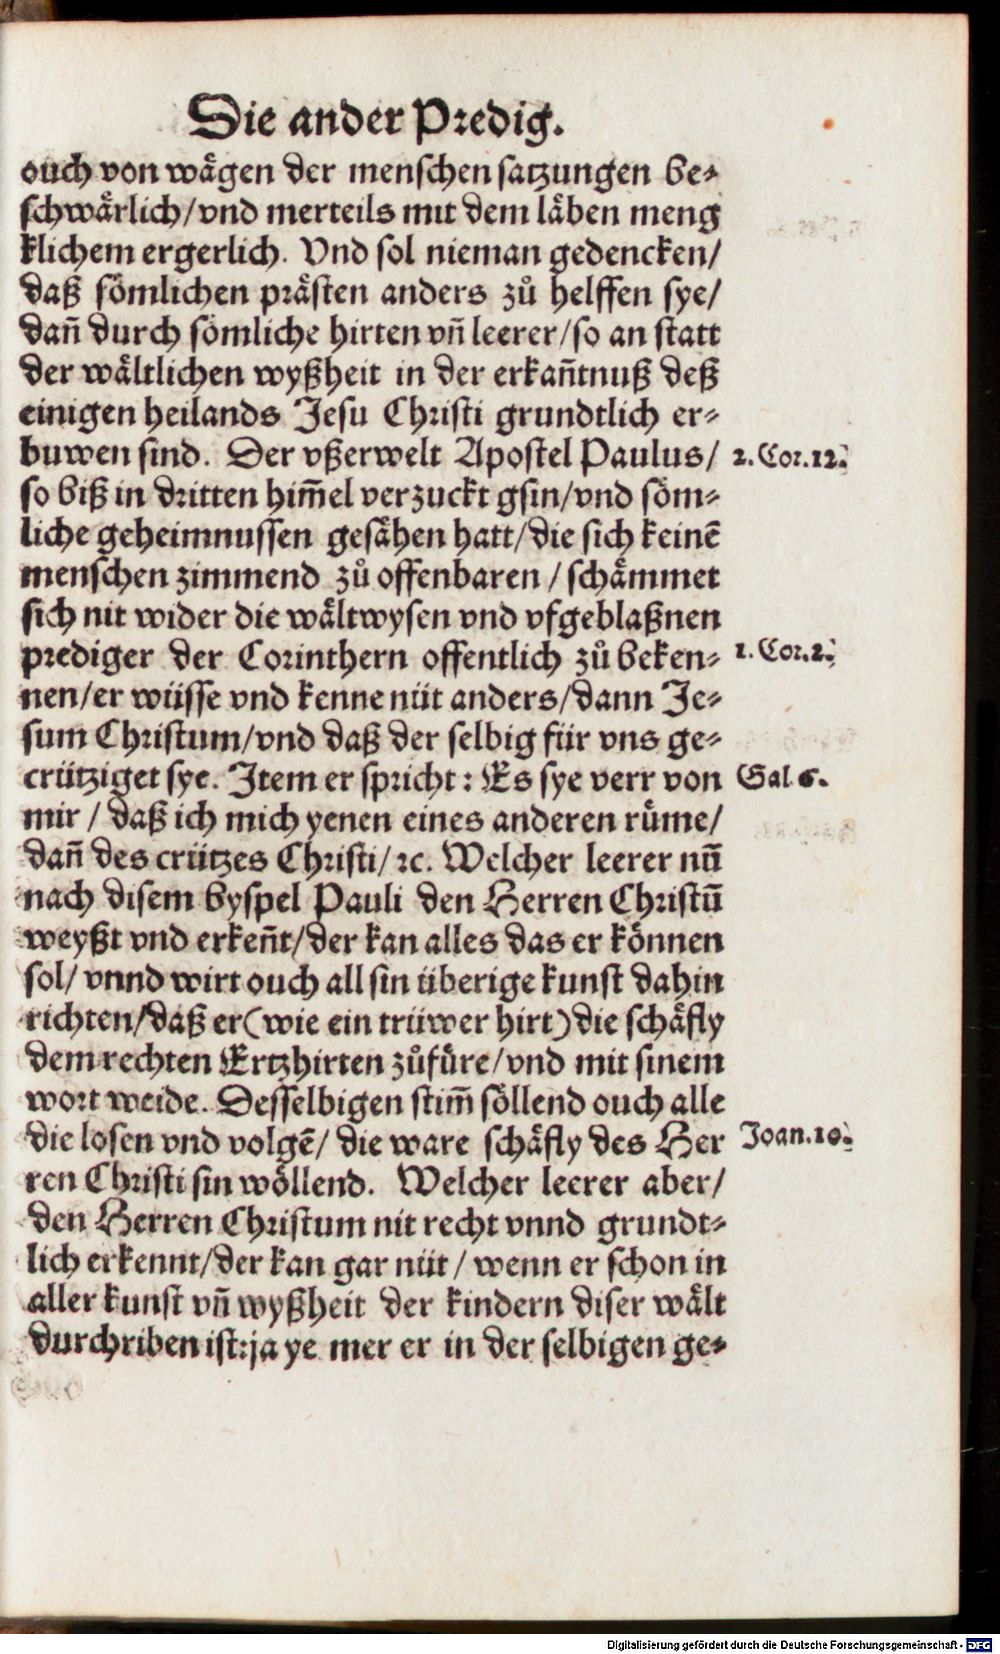 Die ander Predig.
ouch von wägen der menschen satzungen be⸗
schwärlich/vnd merteils mit dem läben meng
klichem ergerlich. Vnd sol nieman gedencken/
daß sömlichen prästen anders zů helffen sye/
dañ durch sömliche hirten vñ leerer/so an statt
der wältlichen wyßheit in der erkañtnuß deß
einigen heilands Jesu Christi grundtlich er⸗
buwen sind. Der vßerwelt Apostel Paulus/ 2. Cor. 12.
so biß in dritten him̃el verzuckt gsin/vnd söm⸗
liche geheimnussen gesähen hatt/die sich keinẽ
menschen zimmend zů offenbaren / schämmet
sich nit wider die wältwysen vnd vfgeblaßnen
prediger der Corinthern offentlich zů beken⸗ 1. Cor. 2.
nen/er wüsse vnd kenne nüt anders/dann Je⸗
sum Christum/vnd daß der selbig für vns ge⸗
crütziget sye. Item er spricht: Es sye verr von Gal. 6.
mir / daß ich mich yenen eines anderen rüme/
dañ des crützes Christi/ ꝛc. Welcher leerer nũ
nach disem byspel Pauli den Herren Christũ
weyßt vnd erkeñt/der kan alles das er können
sol/ vnnd wirt ouch all sin überige kunst dahin
richten/daß er(wie ein trüwer hirt)die schäfly
dem rechten Ertzhirten zůfüre/vnd mit sinem
wort weide. Desselbigen stim̃ söllend ouch alle
die losen vnd volgẽ/ die ware schäfly des Her Joan. 10.
ren Christi sin wöllend. Welcher leerer aber/
den Herren Christum nit recht vnnd grundt⸗
lich erkennt/der kan gar nüt / wenn er schon in
aller kunst vñ wyßheit der kindern diser wält
durchriben ist:ja ye mer er in der selbigen ge⸗
Digitalisierung gefördert durch die Deutsche Forschungsgemeinschaft - DFG